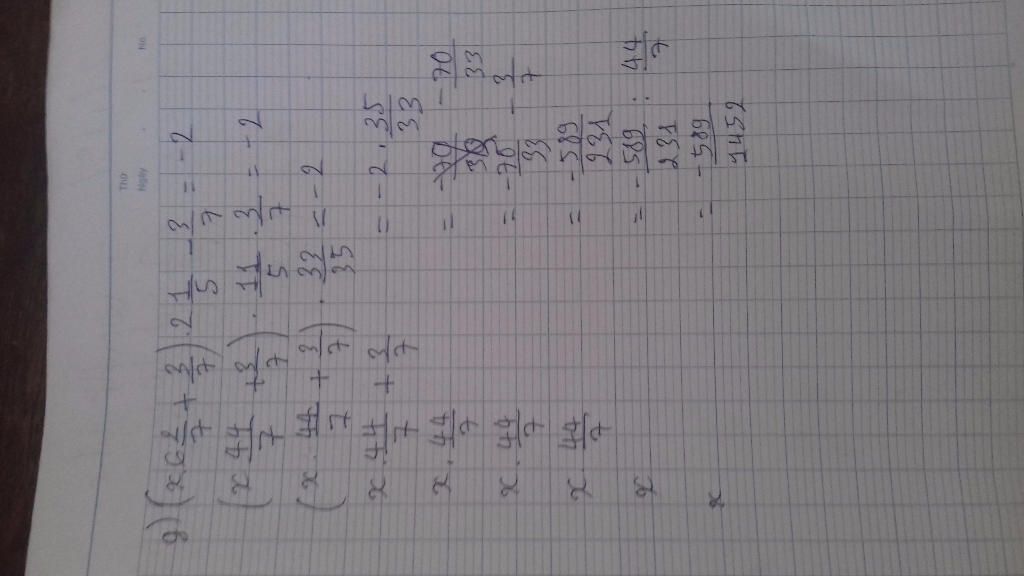 Thứ
Ngày No.
g) (x.6 2/7 + 3/7) . 2 1/5 - 3/7 = -2
(x . 44/7 + 3/7) . 11/5 . 3/7 = -2
(x . 44/7 + 3/7) . 33/35 = -2
x . 44/7 + 3/7 = -2 . 35/33
x . 44/7 = - 70/33 - 70/33
x . 44/7 = - 70/33 - 3/7
x . 44/7 = - 589/231
x = - 589/231 : 44/7
x = - 589/1452